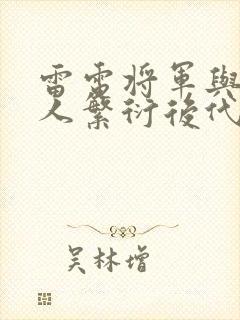 雷電将軍與
人繁衍後代
吴林增